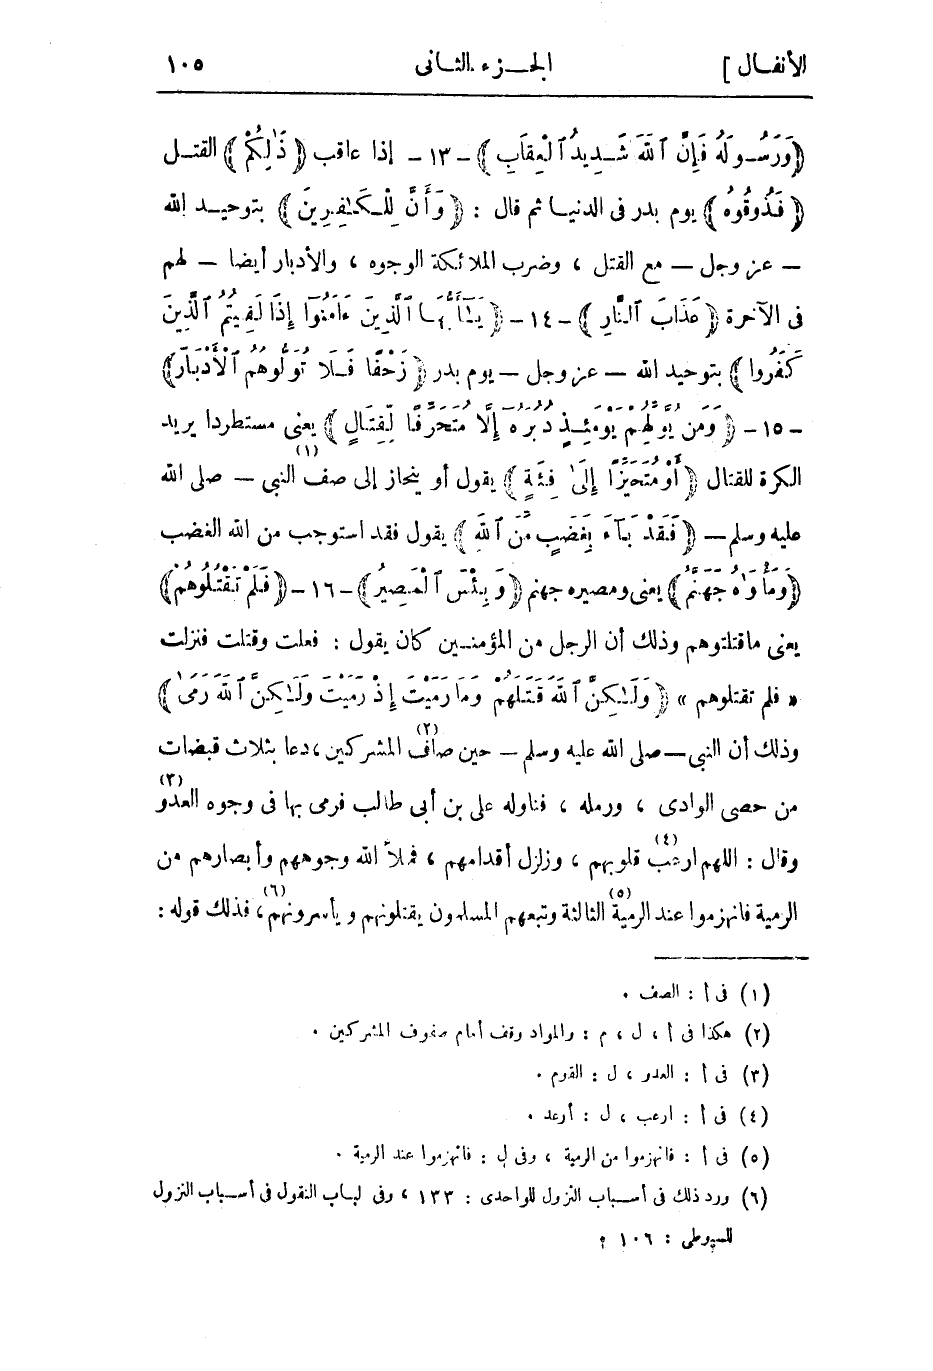 الأنفال ] الجزء الثانى ١٠٥
﴿وَرَسُولَهُ فَإِنَّ ٱللَّهَ شَدِيدُ ٱلْعِقَابِ﴾ - ١٣ - إذا عاقب ﴿ذَٰلِكُمْ﴾ القتل
﴿فَذُوقُوهُ﴾ يوم بدر فى الدنيا ثم قال : ﴿وَأَنَّ لِلْكَٰفِرِينَ﴾ بتوحيد الله
— عز وجل — مع القتل ، وضرب الملائكة الوجوه ، والأدبار أيضا — لهم
فى الآخرة ﴿عَذَابَ ٱلنَّارِ﴾ - ١٤ - ﴿يَٰٓأَيُّهَا ٱلَّذِينَ ءَامَنُوٓا إِذَا لَقِيتُمُ ٱلَّذِينَ
كَفَرُوا﴾ بتوحيد الله — عز وجل — يوم بدر ﴿زَحْفًا فَلَا تُوَلُّوهُمُ ٱلْأَدْبَارَ﴾
- ١٥ - ﴿وَمَن يُوَلِّهِمْ يَوْمَئِذٍ دُبُرَهُۥٓ إِلَّا مُتَحَرِّفًا لِّقِتَالٍ﴾ يعنى مستطردا يريد
الكرة للقتال ﴿أَوْ مُتَحَيِّزًا إِلَىٰ فِئَةٍ﴾ يقول أو ينحاز إلى صف(١) النبي — صلى الله
عليه وسلم — ﴿فَقَدْ بَآءَ بِغَضَبٍ مِّنَ ٱللَّهِ﴾ يقول فقد استوجب من الله الغضب
﴿وَمَأْوَىٰهُ جَهَنَّمُ﴾ يعنى ومصيره جهنم ﴿وَبِئْسَ ٱلْمَصِيرُ﴾ - ١٦ - ﴿فَلَمْ تَقْتُلُوهُمْ﴾
يعنى ما قتلتوهم وذلك أن الرجل من المؤمنين كان يقول : فعلت وقتلت فنزلت
« فلم تقتلوهم » ﴿وَلَٰكِنَّ ٱللَّهَ قَتَلَهُمْ وَمَا رَمَيْتَ إِذْ رَمَيْتَ وَلَٰكِنَّ ٱللَّهَ رَمَىٰ﴾
وذلك أن النبي — صلى الله عليه وسلم — حين صاف(٢) المشركين ، دعا بثلاث قبضات
من حصى الوادى ، ورمله ، فناوله على بن أبى طالب فرمى بها فى وجوه العدو(٣)
وقال : اللهم ارعب(٤) قلوبهم ، وزلزل أقدامهم ، فملأ الله وجوههم وأبصارهم من
الرمية فانهزموا عند الرمية(٥) الثالثة وتبعهم المسلمون يقتلونهم ويأسرونهم(٦) ، فذلك قوله :
(١) فى أ : الصف .
(٢) هكذا فى أ ، ل ، م : والمراد وقف أمام صفوف المشركين .
(٣) فى أ : العدو ، ل : القوم .
(٤) فى أ : ارعب ، ل : أرعد .
(٥) فى أ : فانهزموا من الرمية ، وفى ل : فانهزموا عند الرمية .
(٦) ورد ذلك فى أسباب النزول للواحدى : ١٣٣ ، وفى لباب النقول فى أسباب النزول
للسيوطى : ١٠٦ ؟